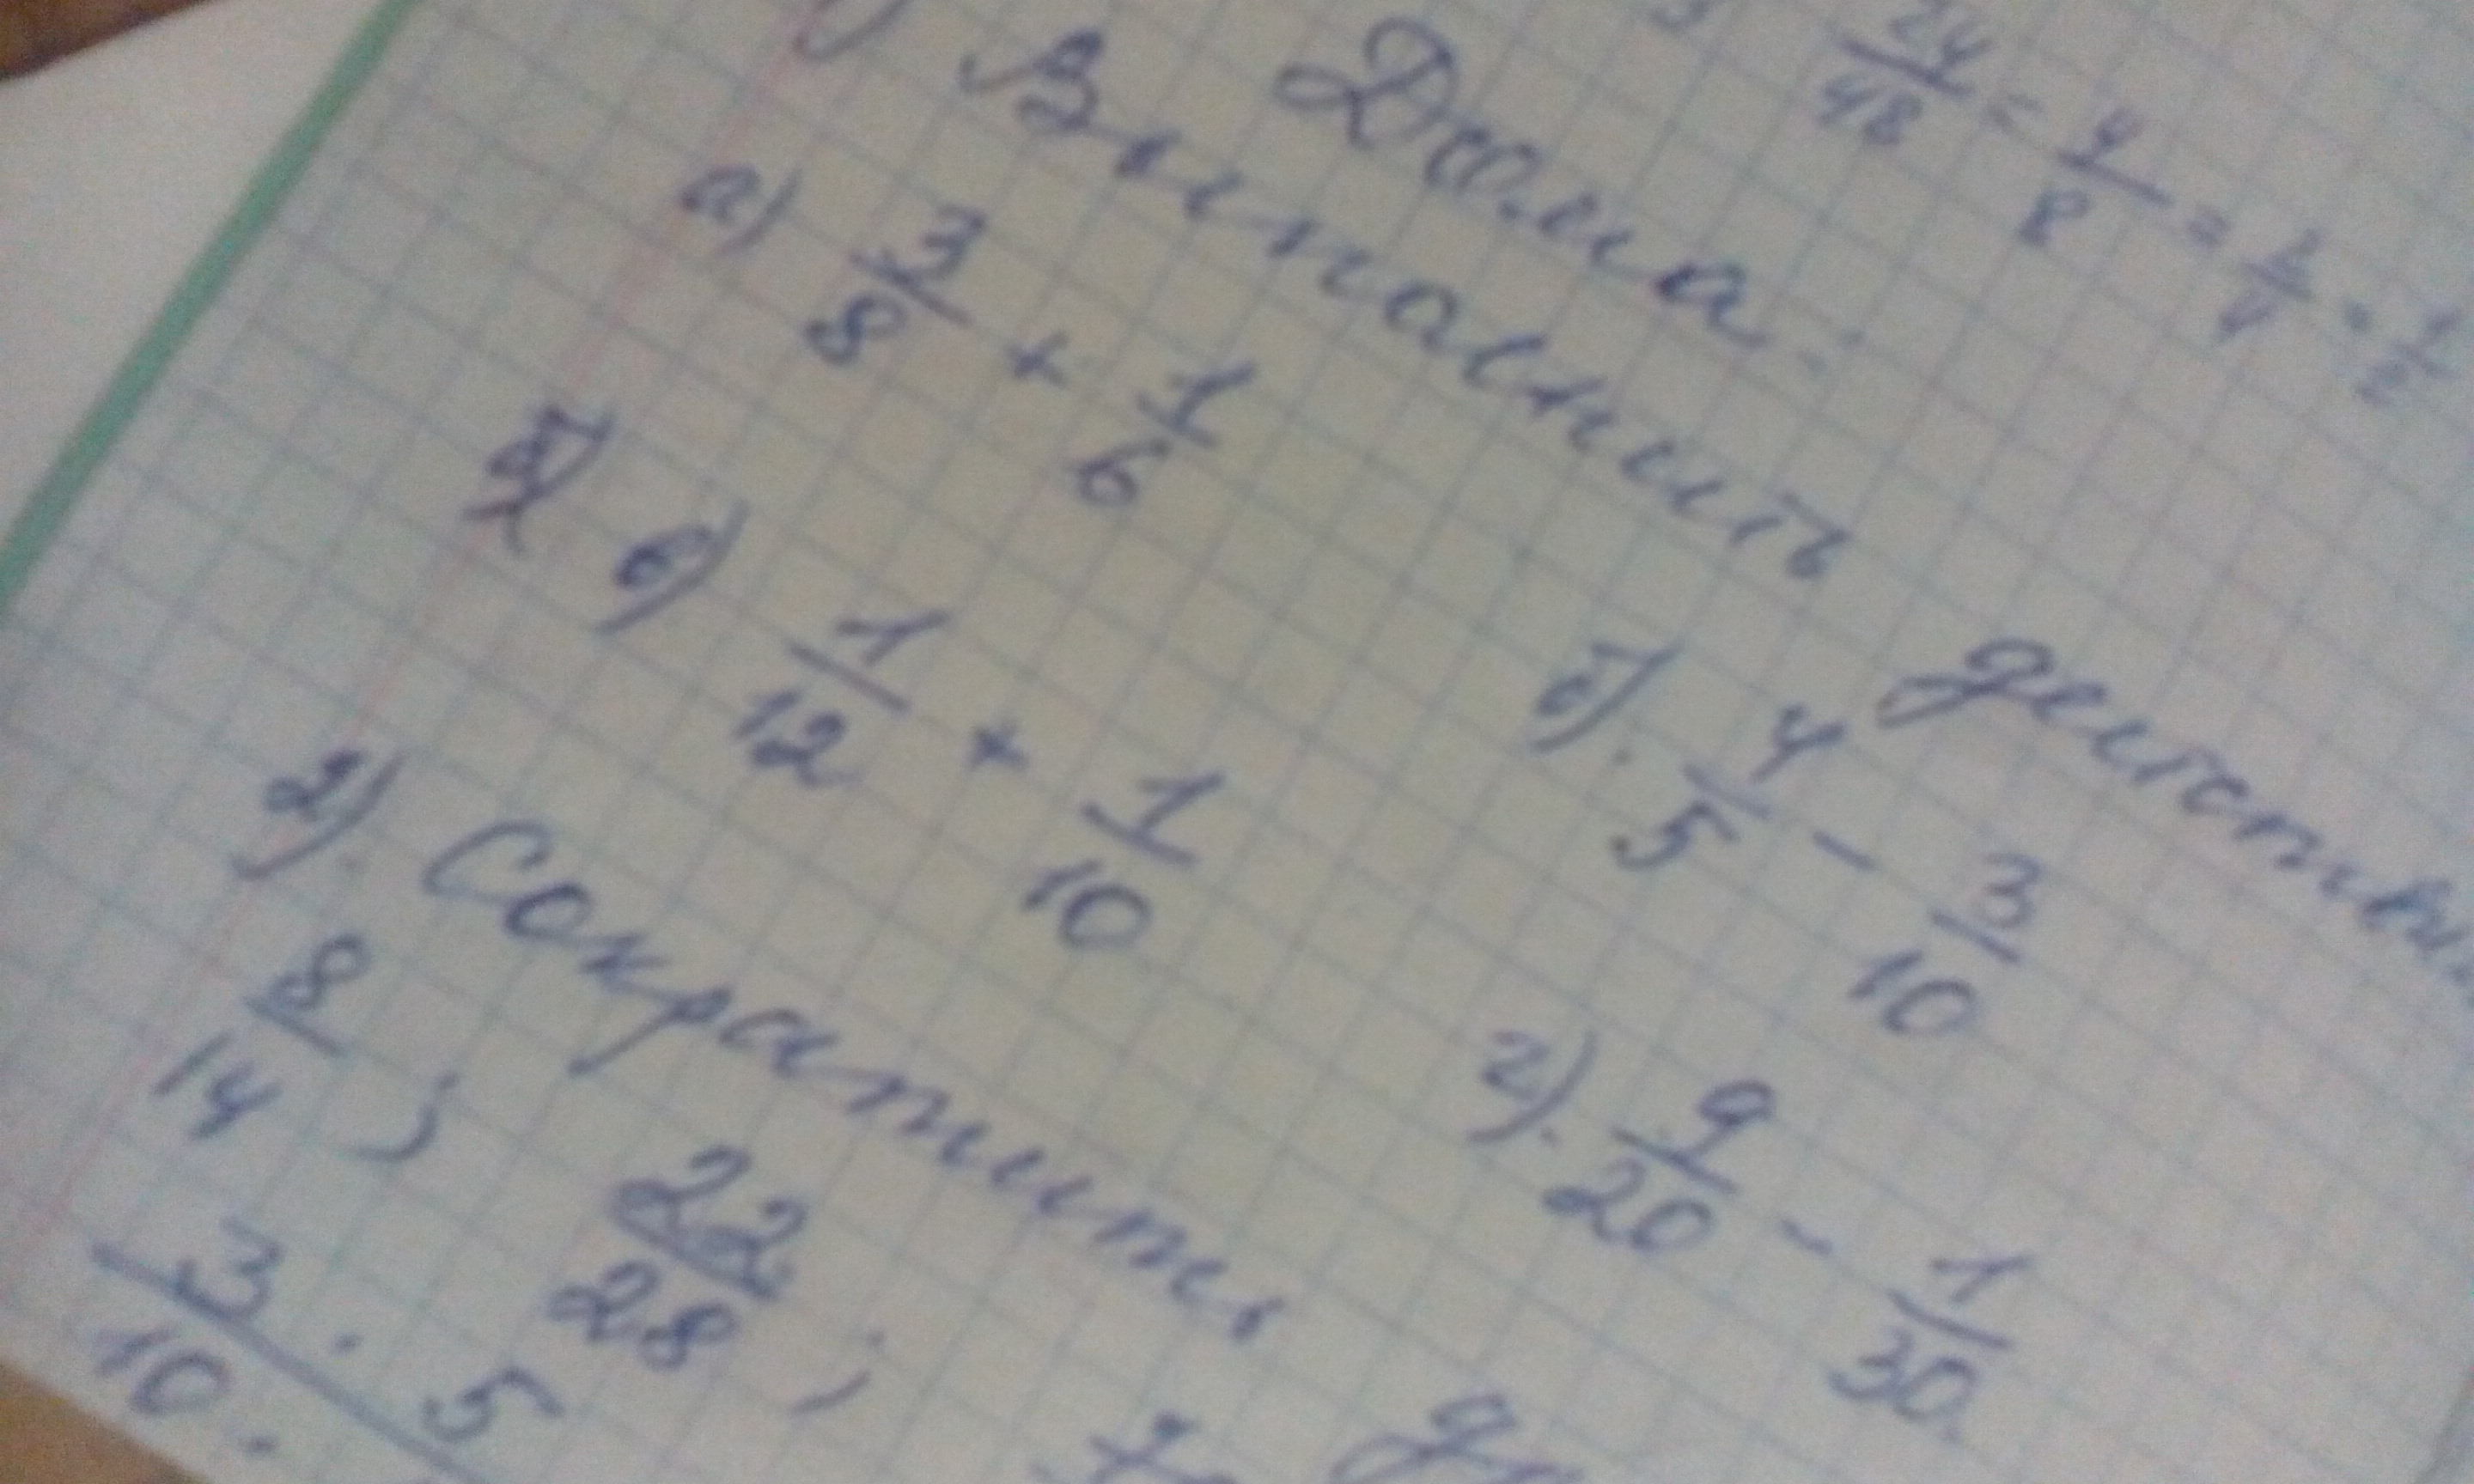 24/48 = 4/8 = 2/4 = 1/2
Дома.
1) Выполнить действия
а) 3/8 + 1/6
б). 4/5 - 3/10
в) 1/12 + 1/10
г). 9/20 - 1/30
2). Сократить
8/14 ; 22/28 ;
3 · 5
10 ·